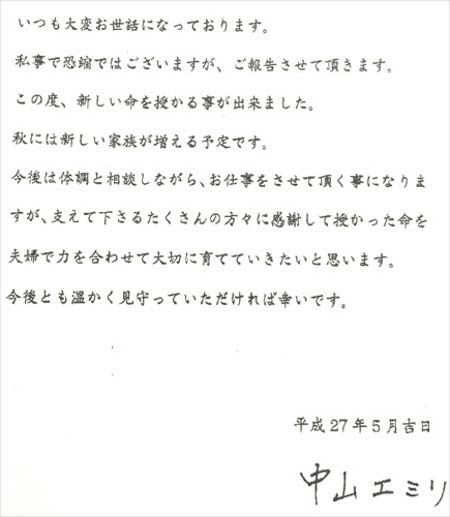 いつも大変お世話になっております。
私事で恐縮ではございますが、ご報告させて頂きます。
この度、新しい命を授かる事が出来ました。
秋には新しい家族が増える予定です。
今後は体調と相談しながら、お仕事をさせて頂く事になりま
すが、支えて下さるたくさんの方々に感謝して授かった命を
夫婦で力を合わせて大切に育てていきたいと思います。
今後とも温かく見守っていただければ幸いです。
平成27年5月吉日
中山エミリ